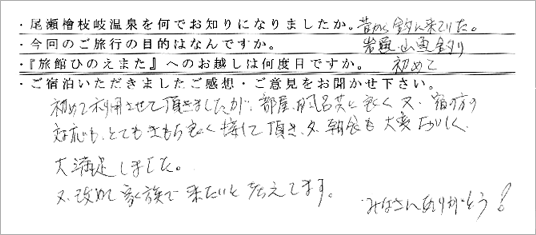 ・尾瀬檜枝岐温泉を何でお知りになりましたか。昔から釣りに来ていた。
・今回のご旅行の目的はなんですか。 岩魚・山魚釣り
・『旅館ひのえまた』へのお越しは何度目ですか。 初めて
・ご宿泊いただきましたご感想・ご意見をお聞かせ下さい。
初めて利用させて頂きましたが、部屋、風呂共に良く 又、宿の方の
対応も、とてもきもち良く接して頂き、夕、朝食も大変おいしく
大満足しました。
又、改めて家族で来たいと考えてます。
みなさんありがとう!